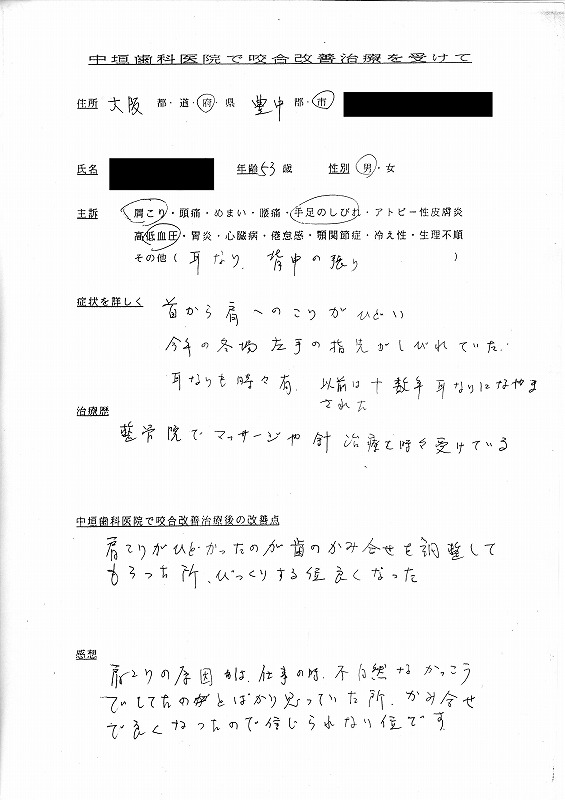 中垣歯科医院で咬合改善治療を受けて
住所 大阪 都・道・府・県 豊中 郡・市
氏名 年齢 53 歳 性別 男・女
主訴 肩こり・頭痛・めまい・腰痛・手足のしびれ・アトピー性皮膚炎
高低血圧・胃炎・心臓病・倦怠感・顎関節症・冷え性・生理不順
その他（ 耳なり、背中の張り ）
症状を詳しく 首から肩へのこりがひどい
今年の冬場 左手の指先がしびれていた.
耳なりも時々有. 以前は十数年耳なりになやま
された
治療歴
整骨院でマッサージや針治療を時々受けている
中垣歯科医院で咬合改善治療後の改善点
肩こりがひどかったのが歯のかみ合せを調整して
もらった所、びっくりする位良くなった
感想
肩こりの原因は、仕事の時、不自然なかっこう
でしてたのがとばかり思っていた所、かみ合せ
で良くなったので信じられない位です